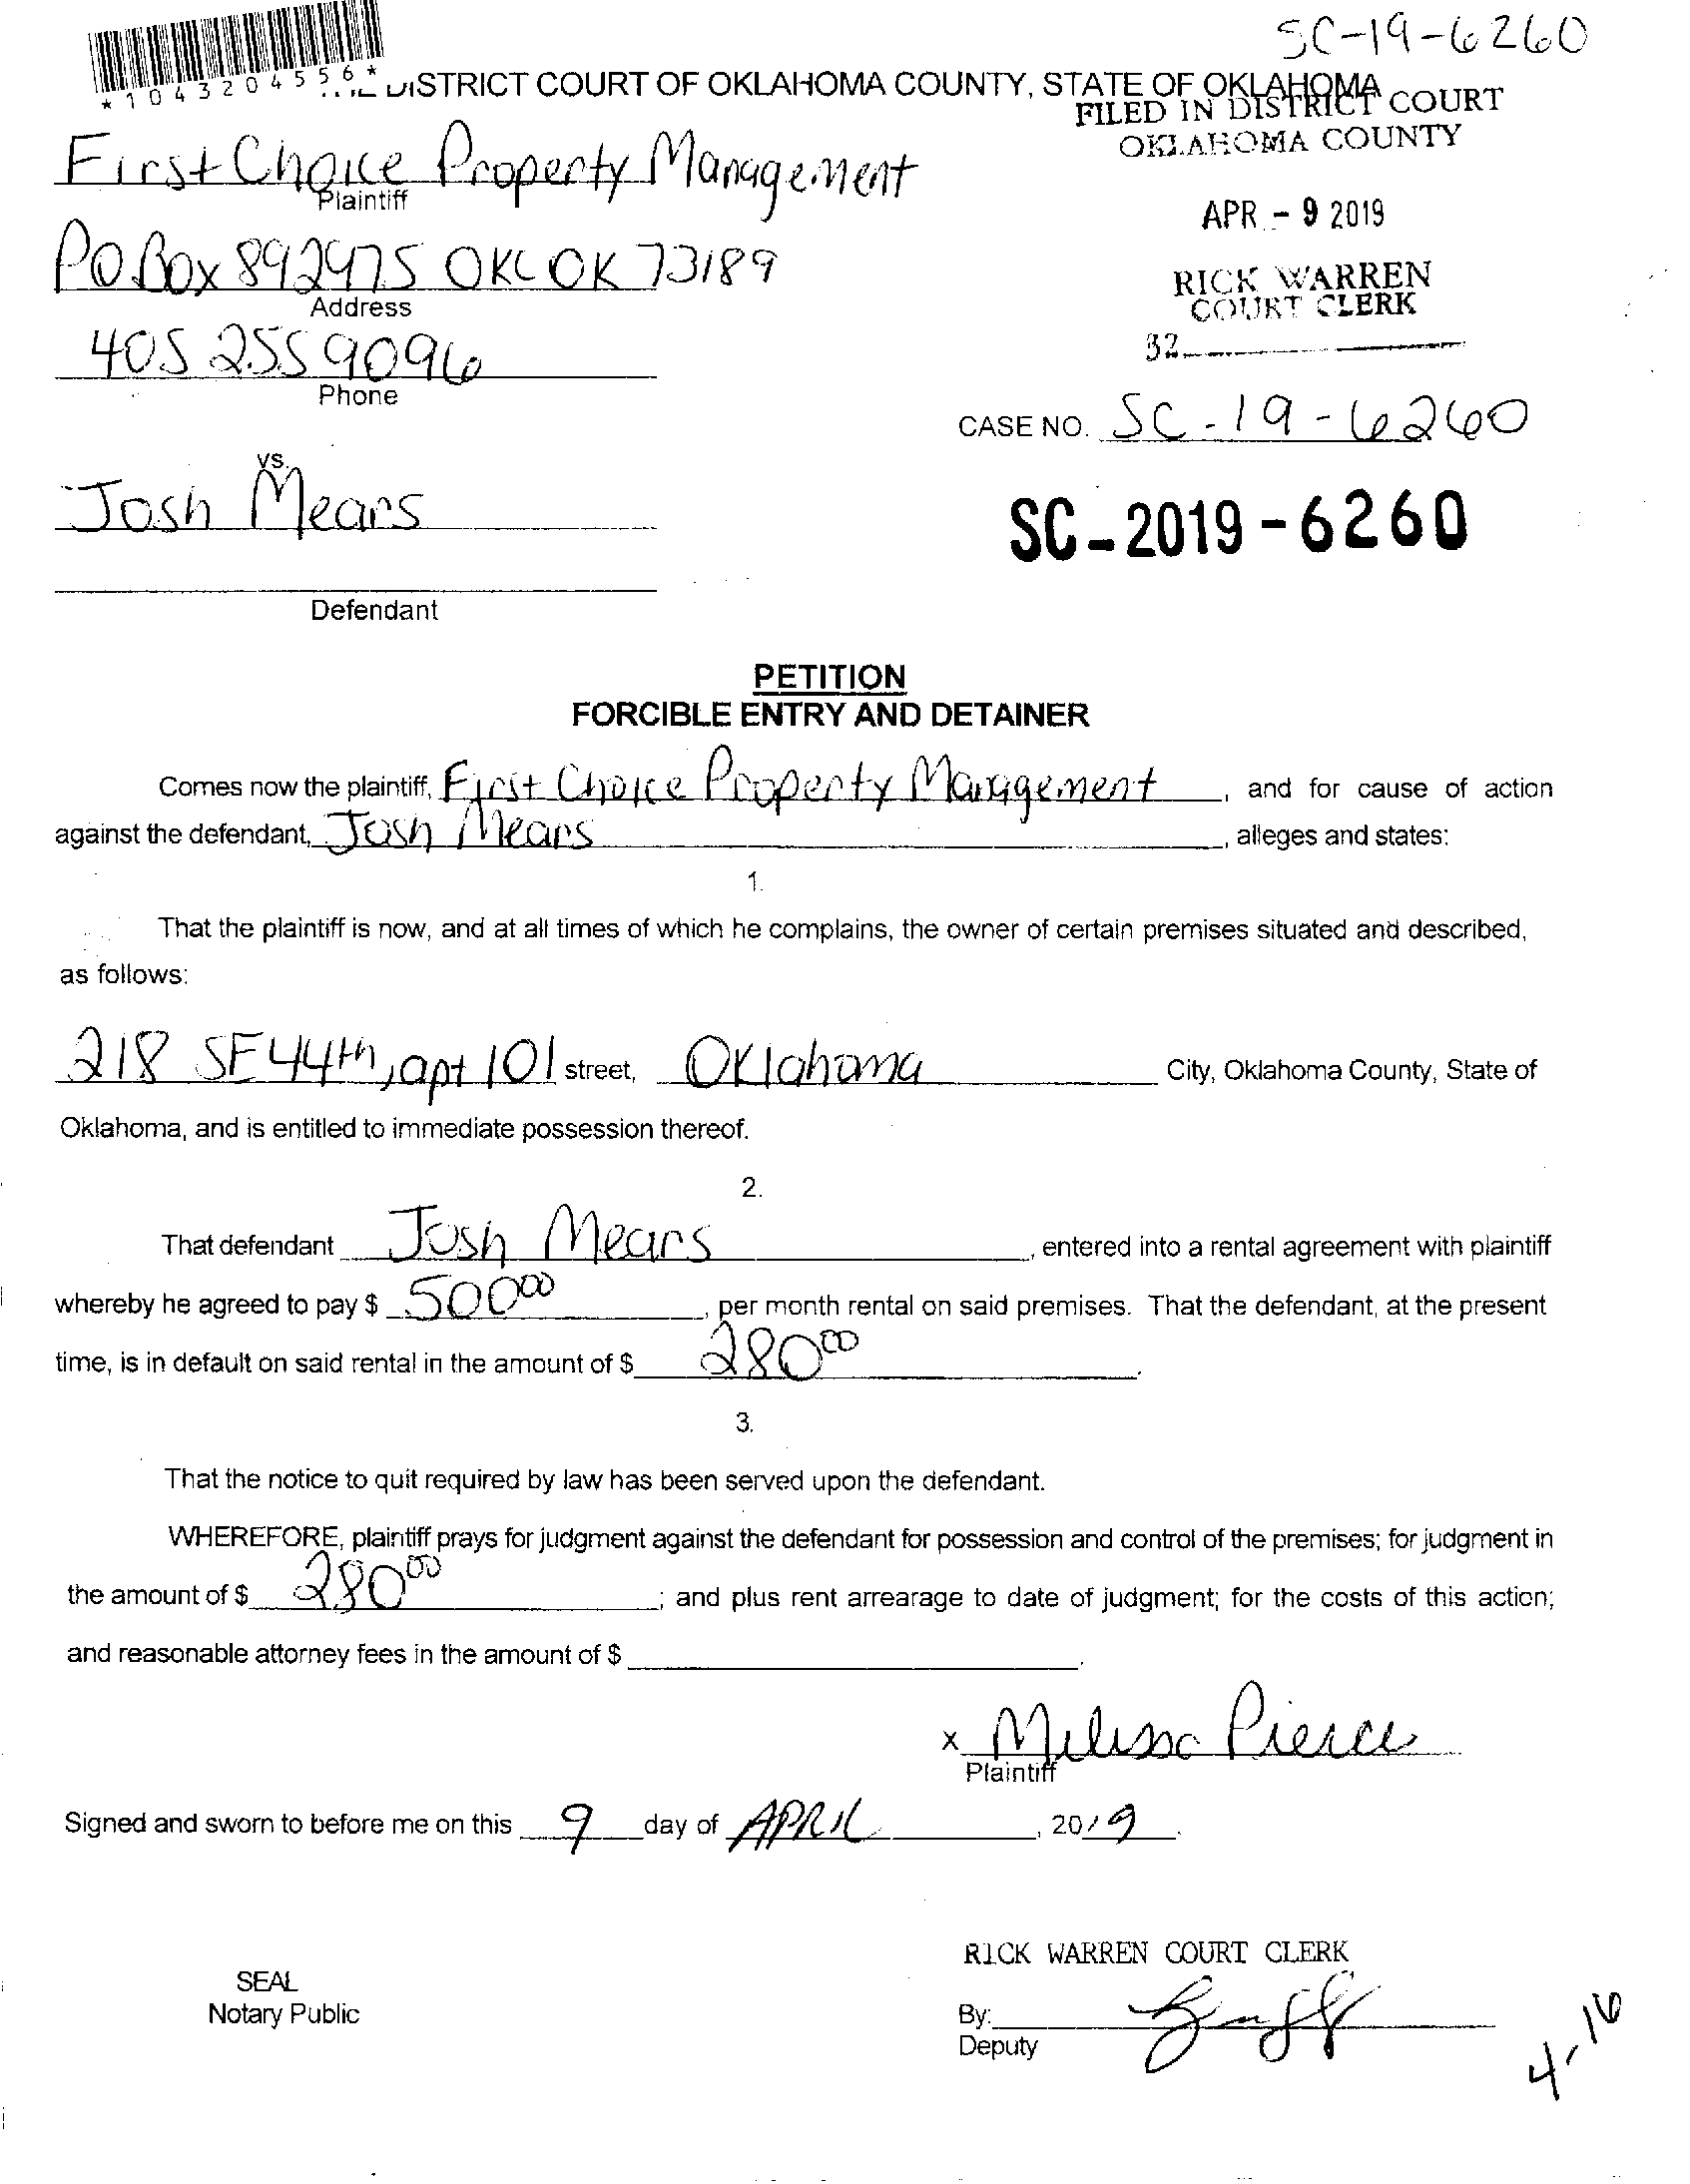 SC-19-6260
*1043204556*
DISTRICT COURT OF OKLAHOMA COUNTY, STATE OF OKLAHOMA
FILED IN DISTRICT COURT
OKLAHOMA COUNTY
First Choice Property Management
Plaintiff
APR - 9 2019
PO Box 892475 OKC OK 73189
Address
RICK WARREN
COURT CLERK
32
405 255 9096
Phone
CASE NO. SC-19-6260
vs.
Josh Mears
SC-2019-6260
Defendant
PETITION
FORCIBLE ENTRY AND DETAINER
Comes now the plaintiff, First Choice Property Management, and for cause of action
against the defendant, Josh Mears, alleges and states:
1.
That the plaintiff is now, and at all times of which he complains, the owner of certain premises situated and described,
as follows:
218 SE 44th, apt 101 street, Oklahoma City, Oklahoma County, State of
Oklahoma, and is entitled to immediate possession thereof.
2.
That defendant Josh Mears, entered into a rental agreement with plaintiff
whereby he agreed to pay $ 500 00, per month rental on said premises. That the defendant, at the present
time, is in default on said rental in the amount of $ 280 00.
3.
That the notice to quit required by law has been served upon the defendant.
WHEREFORE, plaintiff prays for judgment against the defendant for possession and control of the premises; for judgment in
the amount of $ 280 00; and plus rent arrearage to date of judgment; for the costs of this action;
and reasonable attorney fees in the amount of $ .
x Melissa Pierce
Plaintiff
Signed and sworn to before me on this 9 day of APRIL, 2019.
RICK WARREN COURT CLERK
SEAL
Notary Public
By:
Deputy
4-16